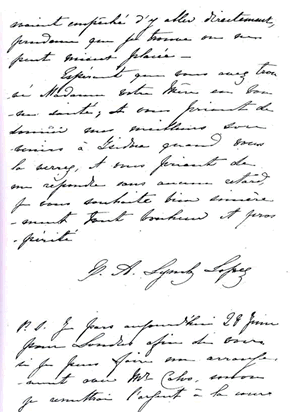 m'aient empêché d'y aller directement,
prudence que je trouve on ne
peut mieux placée –
Espérant que vous avez trou
vé Madame votre Mère en bon
ne santé, et vous priant de
mes meilleurs sou
venirs à Isidora quand vous
la verrez, et vous priant de
me répondre sans aucun retard,
je vous souhaite bien sincère
-ment tout bonheur et pros
périté
E. A. Lynch Lopez
P. S. Je pars aujourd'hui 28 Juin
pour Londres afin de voir
si je puis faire un arrange
-ment avec Mr
je remettrai l'argent à la